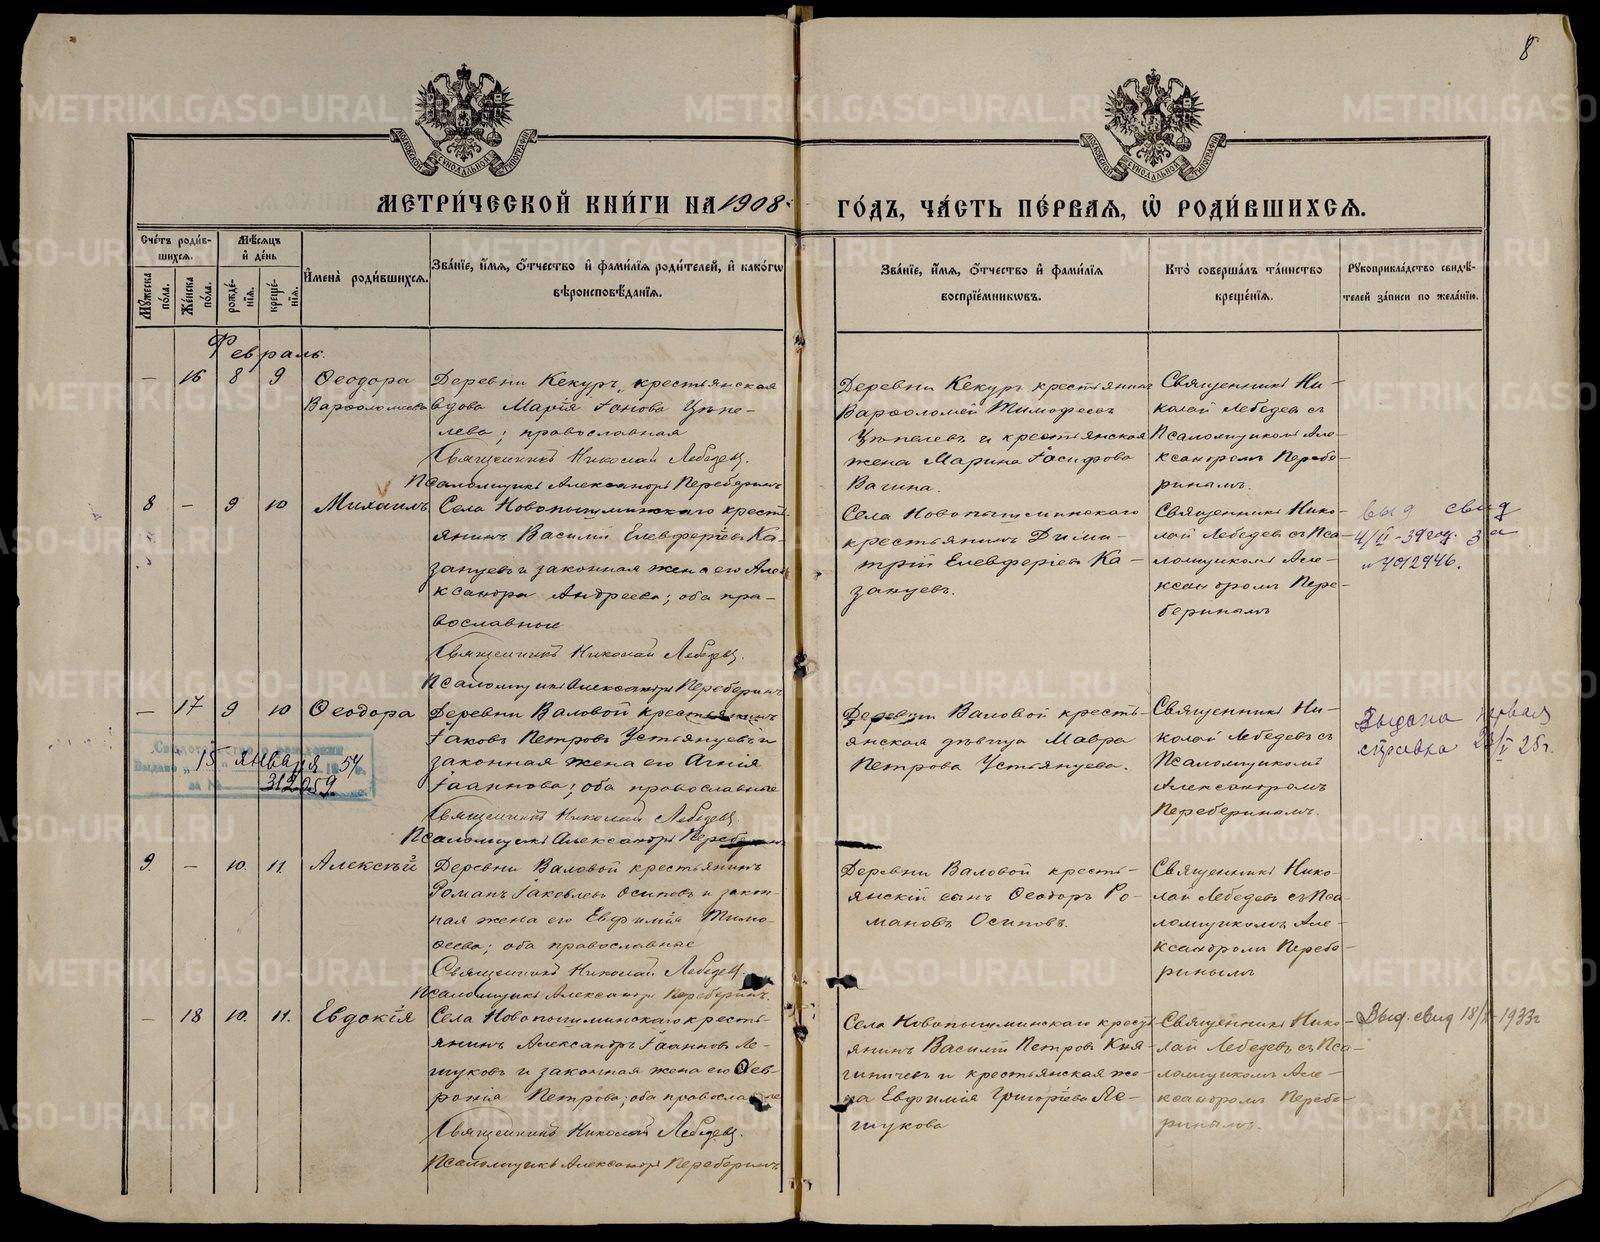 8
МЕТРИ́ЧЕСКОЙ КНИ́ГИ НА 1908
ГО́ДЪ, ЧА́СТЬ ПЕ́РВАЯ, Ѡ҆ РОДИ́ВШИХСЯ.
Счетъ роди́в-
шихся.
Мꙋжеска по́ла.
Же́нска по́ла.
Мѣ́сяцъ и де́нь
рожде́нїя.
креще́нїя.
Имена̀ роди́вшихся.
Зва́нїе, и́мя, ѻ҆́тчество и фами́лїя роди́телей, и како́гѡ
вѣроисповѣ́данїя.
Зва́нїе, и́мя, ѻ҆́тчество и фами́лїя
воспрїе́мникѡвъ.
Кто̀ соверша́лъ та́инство
креще́нїя.
Рꙋкоприкла́дство свидѣ́-
телей за́писи по жела́нїю.
Февраль.
— 16 8 9
Ѳеодора
Варѳоломеева
Деревни Кекуръ, крестьянская
вдова Марія Іанова Цѣпе-
лева; православная
Священникъ Николай Лебедевъ.
Псаломщикъ Александръ Переберинъ
Деревни Кекуръ крестьянинъ
Варѳоломей Тимофеевъ
Цѣпелевъ и крестьянская
жена Марина Іосифова
Вагина.
Священникъ Ни-
колай Лебедевъ съ
Псаломщикомъ Але-
ксандромъ Перебе-
ринымъ.
8 — 9 10
Михаилъ
Села Новопышминскаго кресть-
янинъ Василій Елевферіевъ Ка-
занцевъ и законная жена его Але-
ксандра Андреева; оба пра-
вославные
Священникъ Николай Лебедевъ.
Псаломщикъ Александръ Переберинъ
Села Новопышминскаго
крестьянинъ Дими-
трій Елевферіевъ Ка-
занцевъ.
Священникъ Нико-
лай Лебедевъ съ Пса-
ломщикомъ Але-
ксандромъ Пере-
беринымъ
выд свид
4/II-39 год. за
№ 4012946.
— 17 9 10
Ѳеодора
Деревни Валовой крестьянинъ
Іаковъ Петровъ Устьянцевъ и
законная жена его Агнія
Іоаннова; оба православные
Священникъ Николай Лебедевъ.
Псаломщикъ Александръ Переберинъ
Свидетельство о рождении
Выдано „15" января 1954 г.
за № 312059
Деревни Валовой кресть-
янская дѣвица Мавра
Петрова Устьянцева.
Священникъ Ни-
колай Лебедевъ съ
Псаломщикомъ
Александромъ
Переберинымъ.
Выдана первая
справка 28/V 25 г.
9. — 10. 11.
Алексѣй
Деревни Валовой крестьянинъ
Романъ Іаковлевъ Осиповъ и закон-
ная жена его Евфимія Тимо-
феева; оба православные
Священникъ Николай Лебедевъ.
Псаломщикъ Александръ Переберинъ.
Деревни Валовой кресть-
янскій сынъ Ѳеодоръ Ро-
мановъ Осиповъ.
Священникъ Нико-
лай Лебедевъ съ Пса-
ломщикомъ Але-
ксандромъ Перебе-
ринымъ
— 18 10. 11.
Евдокія
Села Новопышминскаго кресть-
янинъ Александръ Іоанновъ Ле-
щуковъ и законная жена его Ѳев-
ронія Петрова; оба православные
Священникъ Николай Лебедевъ.
Псаломщикъ Александръ Переберинъ
Села Новопышминскаго кресть-
янинъ Василій Петровъ Кня-
гиничевъ и крестьянская же-
на Евфимія Григоріева Ле-
щукова
Священникъ Нико-
лай Лебедевъ съ Пса-
ломщикомъ Але-
ксандромъ Перебе-
ринымъ.
Выд. свид 18/X-1933 г
METRIKI.GASO-URAL.RU